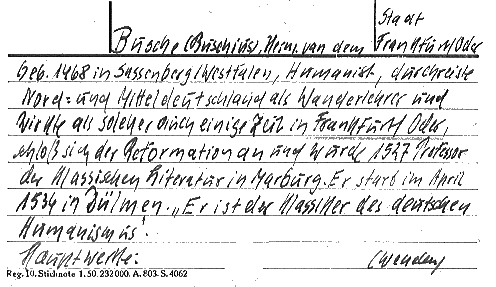 Stadt
Busche (Buschius), Herm. van dem Frankfurt/Oder
Geb. 1468 in Sassenberg/Westfalen, Humanist, durchreiste
Nord= und Mitteldeutschland als Wanderlehrer und
wirkte als solcher auch einige Zeit in Frankfurt/Oder,
schloß sich der Reformation an und wurde 1527 Professor
der klassischen Literatur in Marburg. Er starb im April
1534 in Dülmen. „Er ist der Klassiker des deutschen
Humanismus'.
Hauptwerke:
Reg. 10. Stichnote 1. 50. 232000. A. 803. S. 4062